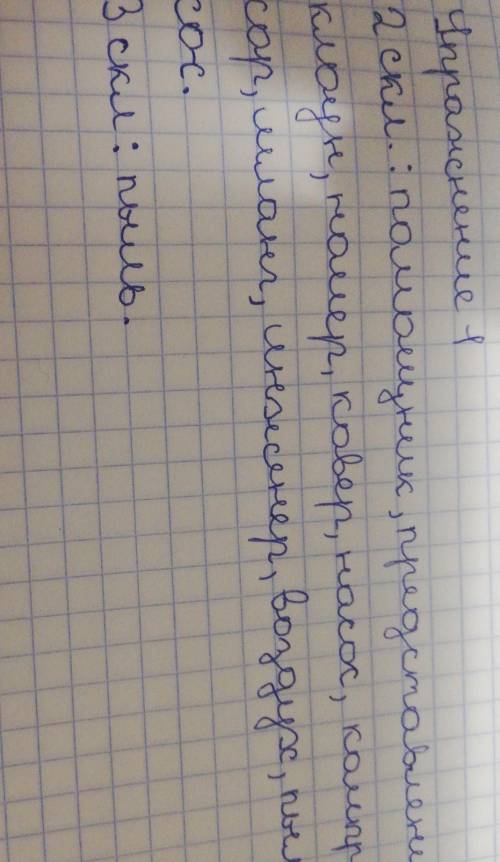 Упражнение 1
2 скл.: помощник, представлени
клоун, номер, ковер, насос, компр
сор, шланг, инженер, воздух, пыл
сос.
3 скл: пыль.